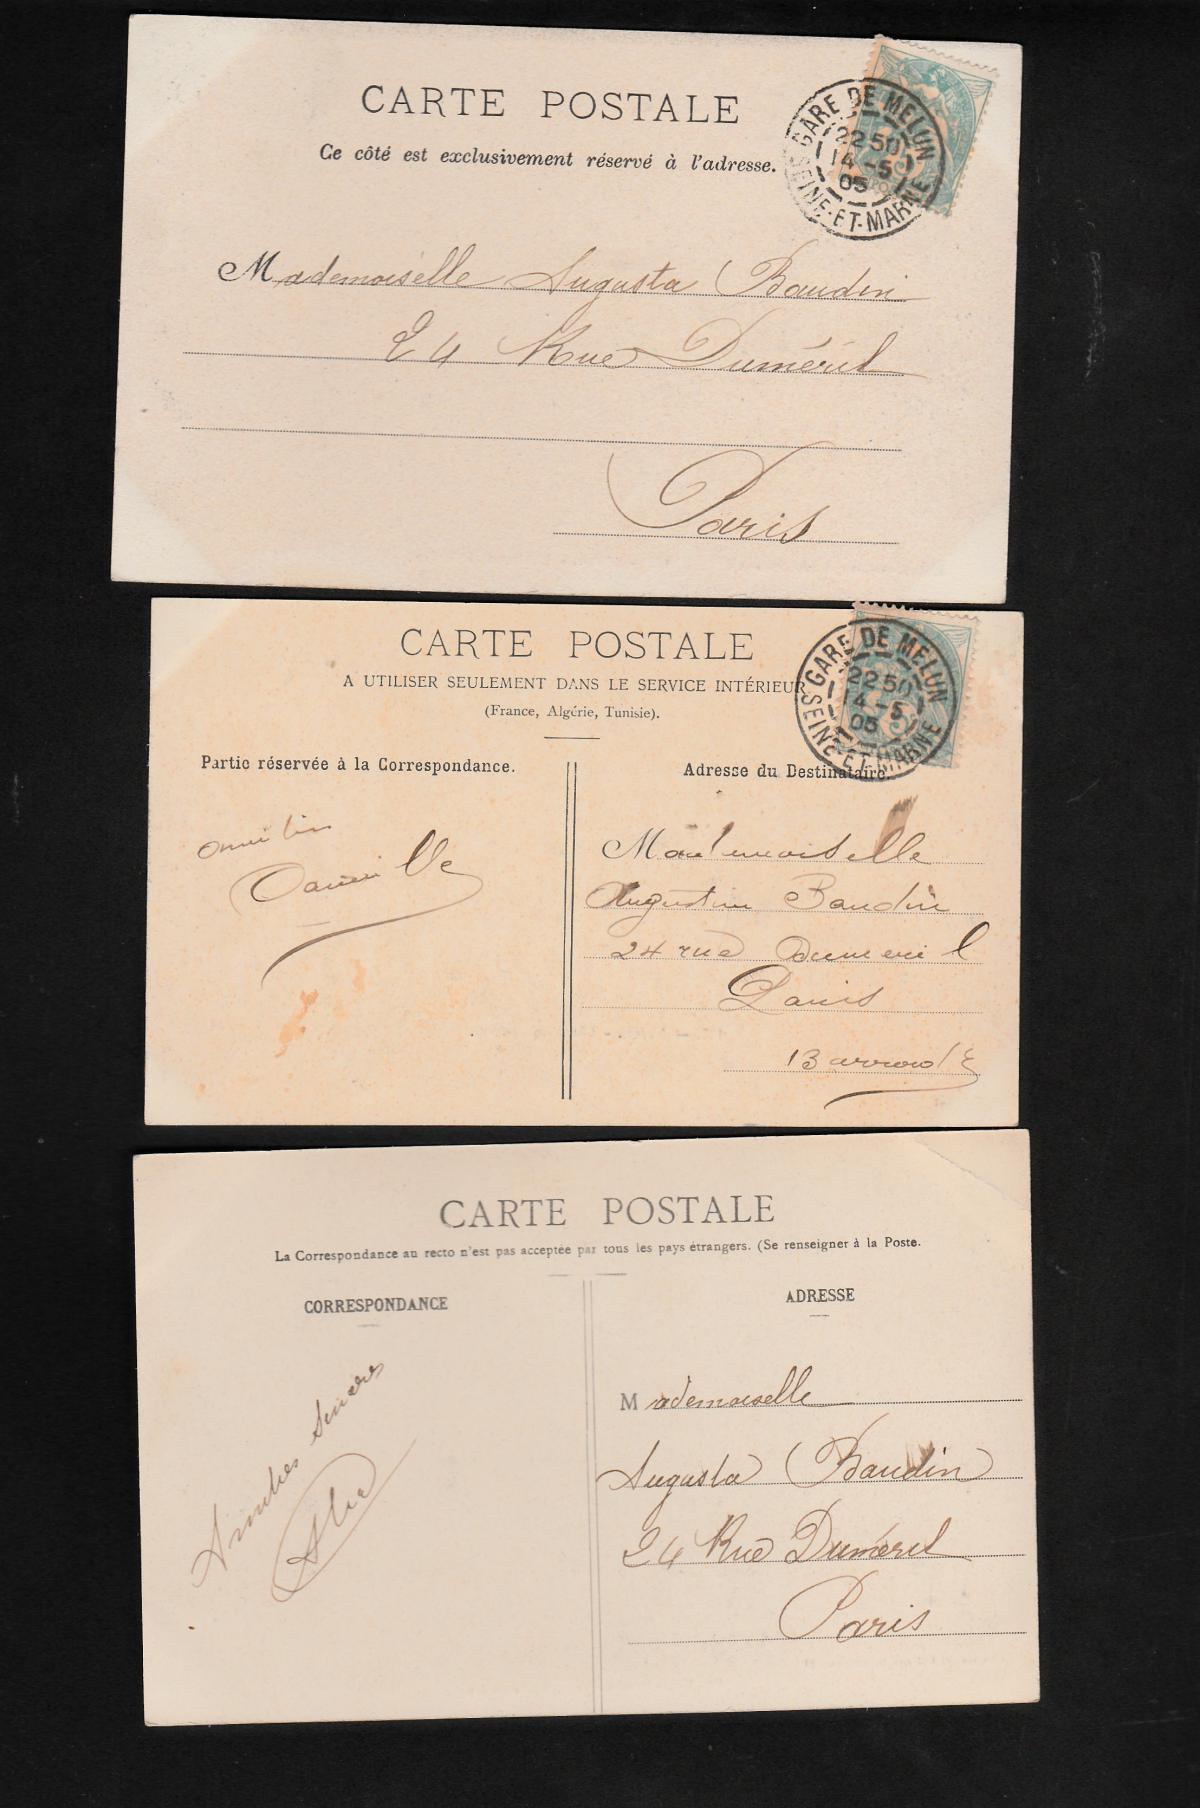 CARTE POSTALE
Ce côté est exclusivement réservé à l'adresse.
GARE DE MELUN
22 50
14 -5
05
SEINE-ET-MARNE
Mademoiselle Augusta Baudin
24 Rue Duméril
Paris
CARTE POSTALE
A UTILISER SEULEMENT DANS LE SERVICE INTÉRIEUR
(France, Algérie, Tunisie).
GARE DE MELUN
22 50
14 -5
05
SEINE-ET-MARNE
Partie réservée à la Correspondance.
Adresse du Destinataire.
Mademoiselle
Augustine Baudin
24 rue Dumeril
Paris
13 arrond
CARTE POSTALE
La Correspondance au recto n'est pas acceptée par tous les pays étrangers. (Se renseigner à la Poste.
CORRESPONDANCE
ADRESSE
Mademoiselle
Augusta Baudin
24 Rue Duméril
Paris
Amitiés